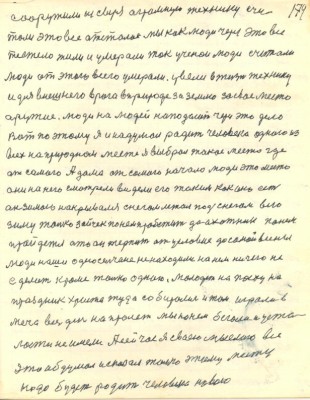 179
сооружили не свиря огромную технику счи
тали это все отсталое мы как люди через это все
тяжело жили и умерали так ученои люди считали
люди от этого всего умерали, ввели эту технику
и для внешнего врага в природе за землю за свое место
оружие. люди на людей нападают через это дело
Вот поэтому я и надумал родить человека одного из
всех на природном месте я выбрал такое место где
от самого Адама от самого начало люди это место
они на него смотрели видели его таким как оно есть
он зимою накривался снегом лежал под снегом всю
зиму только зайчик по нем пробежит да охотник по нем
пройдется это он терпит от условие до самой весны
люди наши односельчане ненаходили на нем ничего не
сделает кроме только одного, молодежь на пасху на
праздник христа туда собирались и там играли в
мяча все, друг на против мы по нем бегали и уста
лости не имели А сейчас я своею мыслею все
это обдумал и сказал только этому месту
надо будет родить человека нового